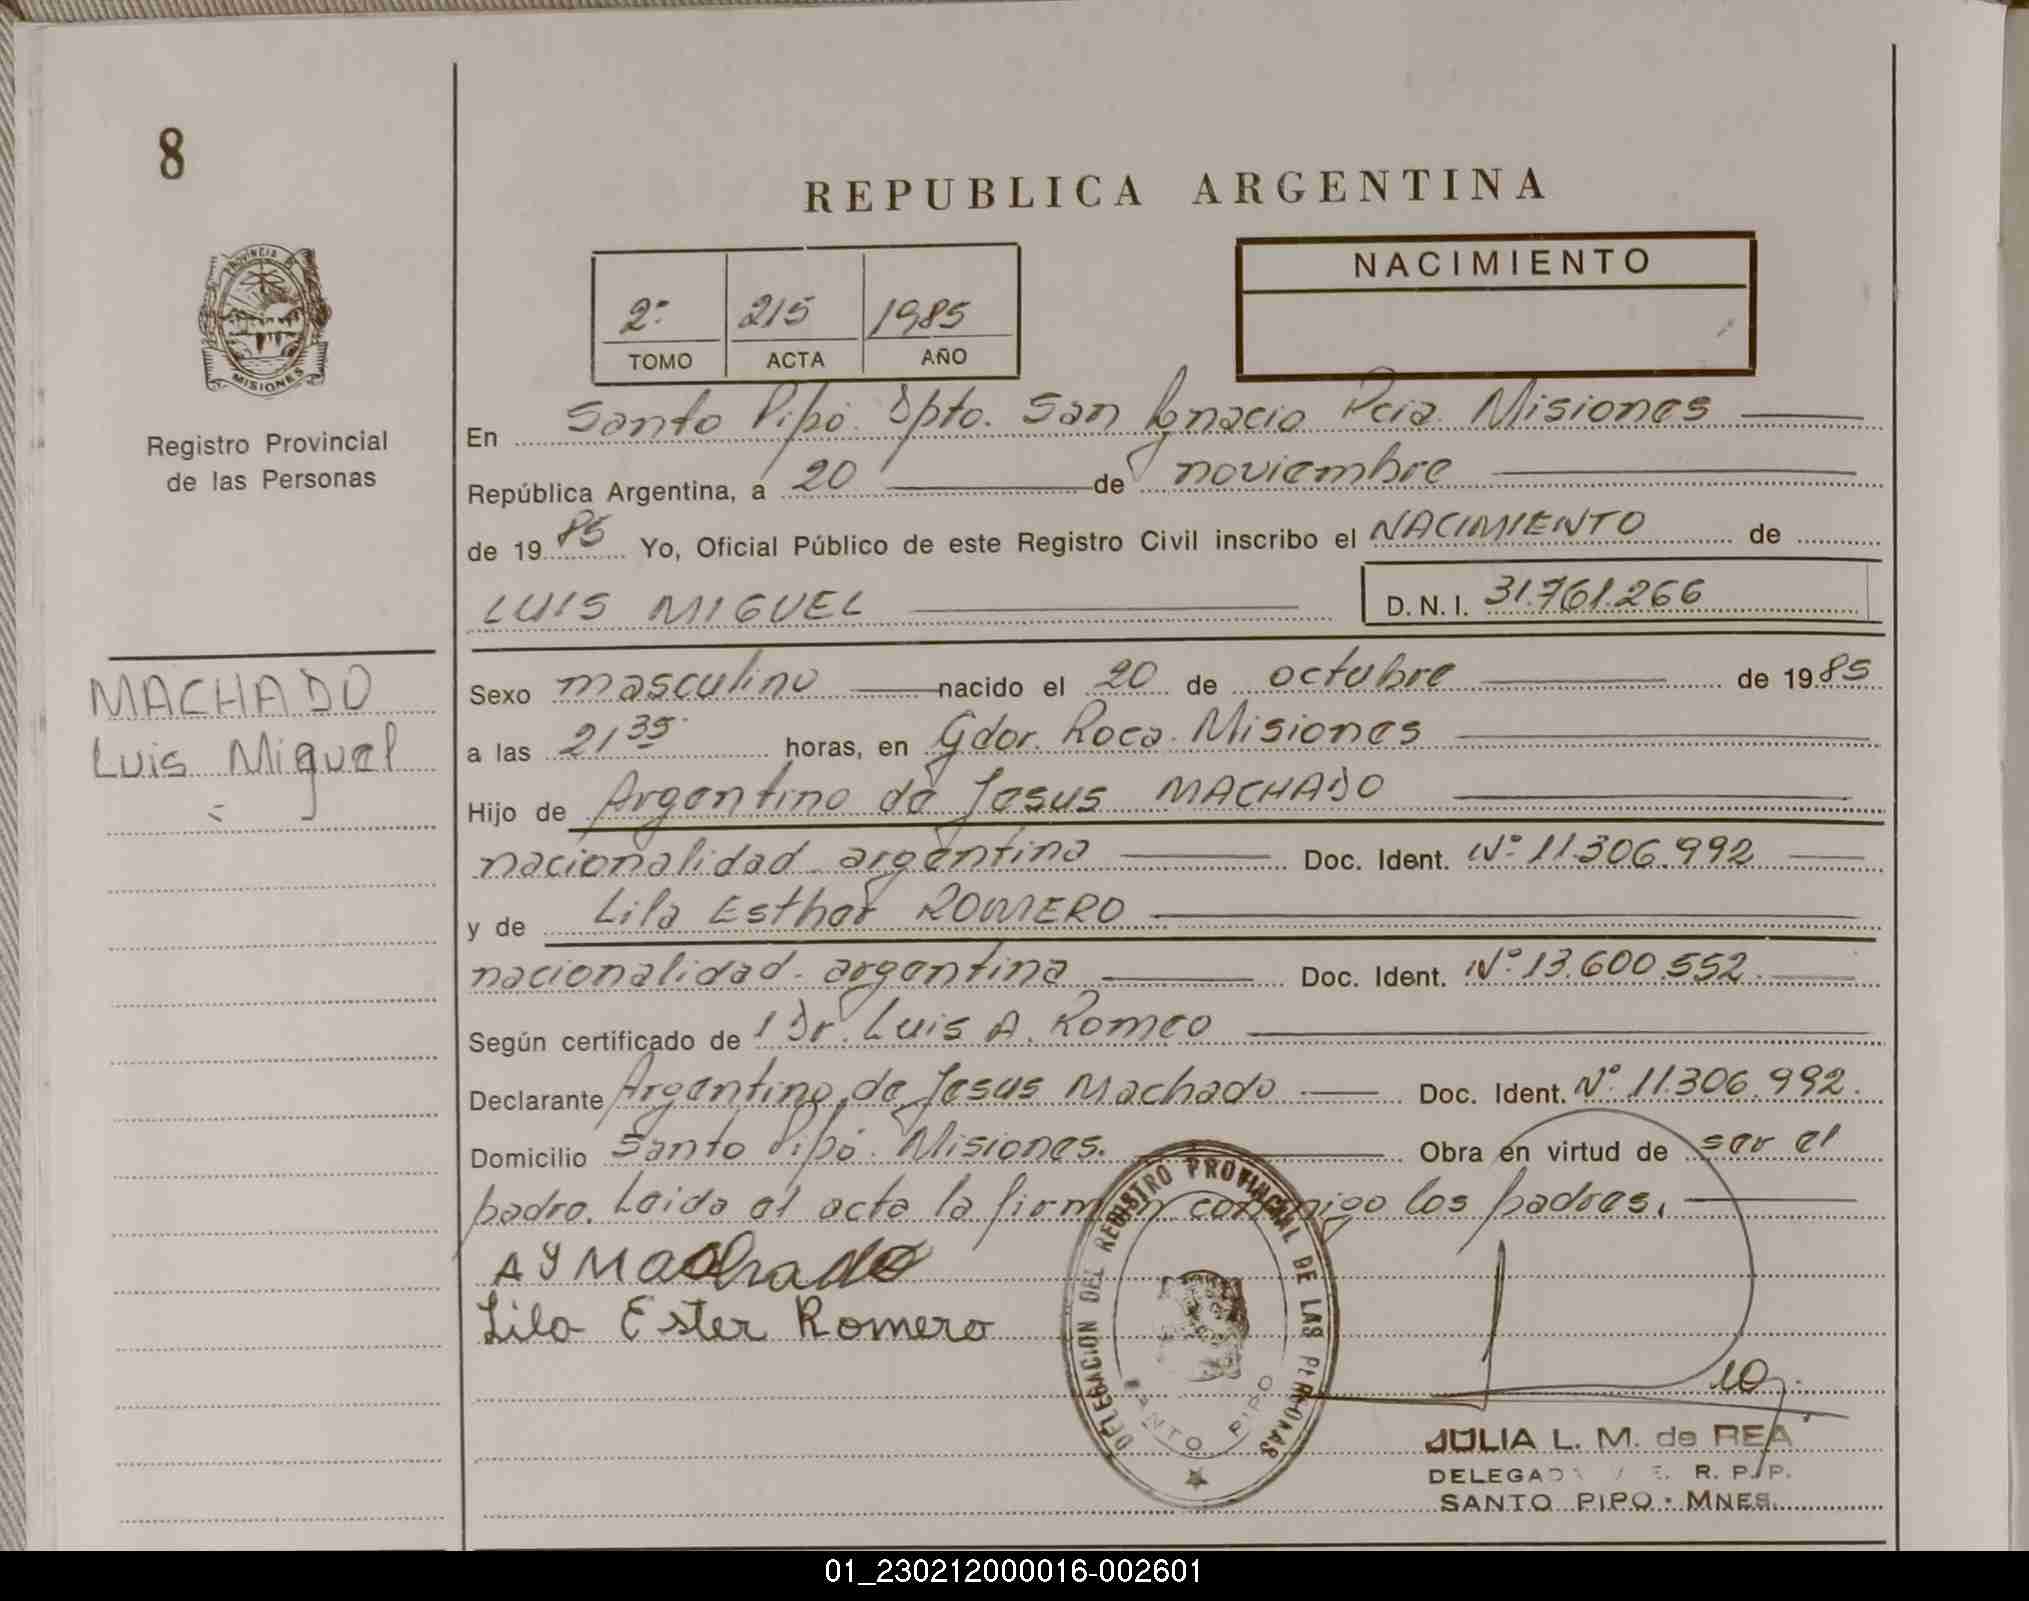 8
REPUBLICA ARGENTINA
PROVINCIA DE
MISIONES
Registro Provincial
de las Personas
2º 215 1985
TOMO ACTA AÑO
NACIMIENTO
En Santo Pipó. Dpto. San Ignacio Pcia. Misiones
República Argentina, a 20 de noviembre
de 1985 Yo, Oficial Público de este Registro Civil inscribo el NACIMIENTO de
LUIS MIGUEL D.N.I. 31.761.266
MACHADO
Luis Miguel
Sexo masculino nacido el 20 de octubre de 1985
a las 21 35 horas, en Gdor. Roca. Misiones
Hijo de Argentino de Jesus MACHADO
nacionalidad argentina Doc. Ident. Nº 11.306.992
y de Lila Esther ROMERO
nacionalidad argentina Doc. Ident. Nº 13.600.552
Según certificado de l Dr. Luis A. Romeo
Declarante Argentino de Jesus Machado Doc. Ident. Nº 11.306.992.
Domicilio Santo Pipó. Misiones. Obra en virtud de ser el
padre. Leida el acta la firman conmigo los padres.
A J Machado
Lila Ester Romero
DELEGACION DEL REGISTRO PROVINCIAL DE LAS PERSONAS
SANTO PIPO
JULIA L. M. de REA
R. P. P.
SANTO PIPO - MNES.
01_230212000016-002601